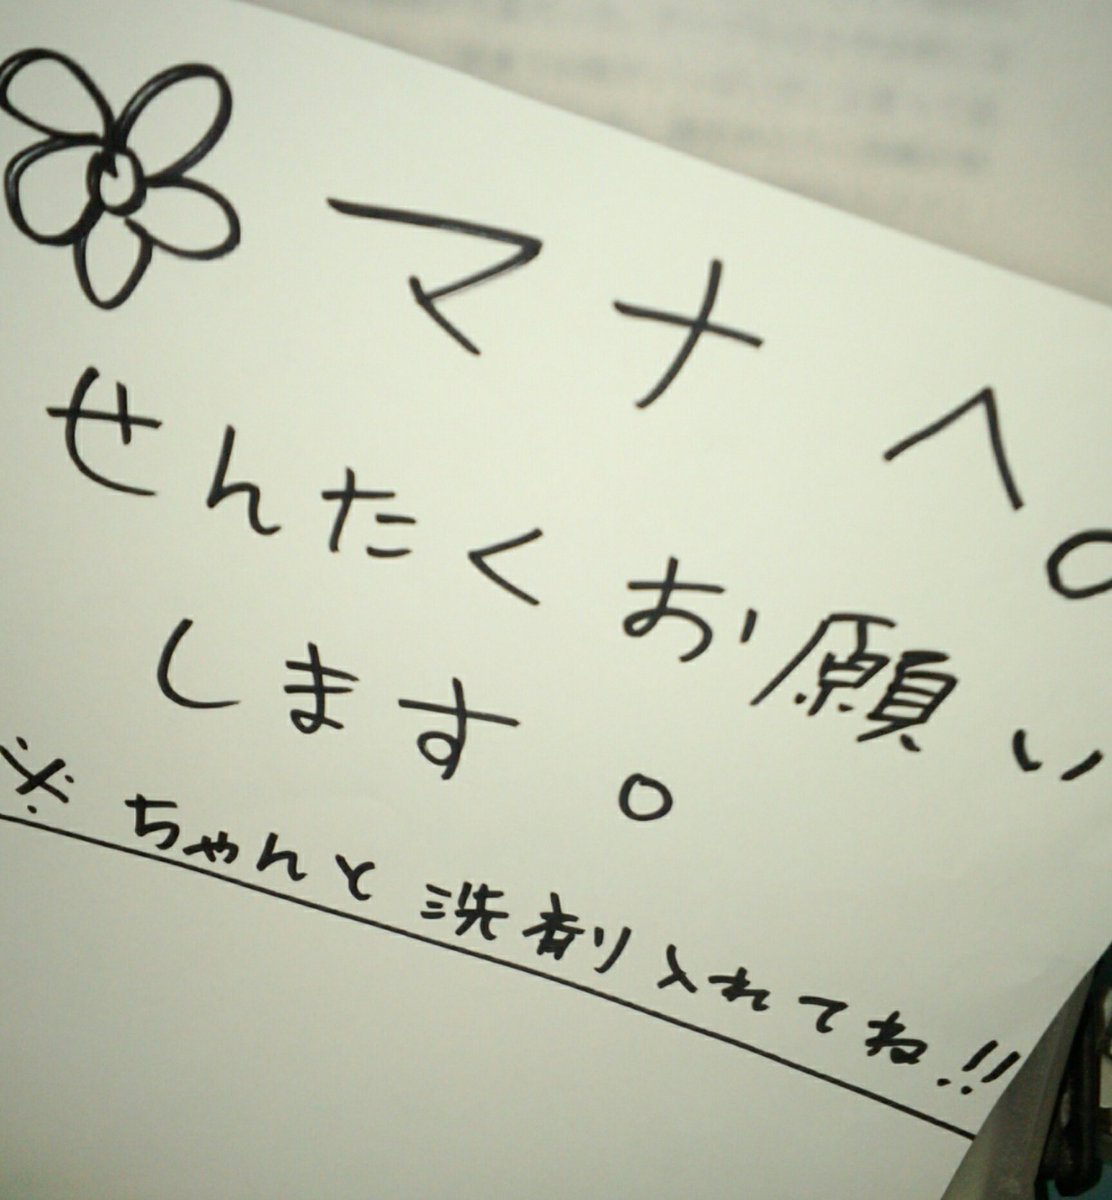 マナへ。
せんたくお願い
します。
※ちゃんと洗剤入れてね!!